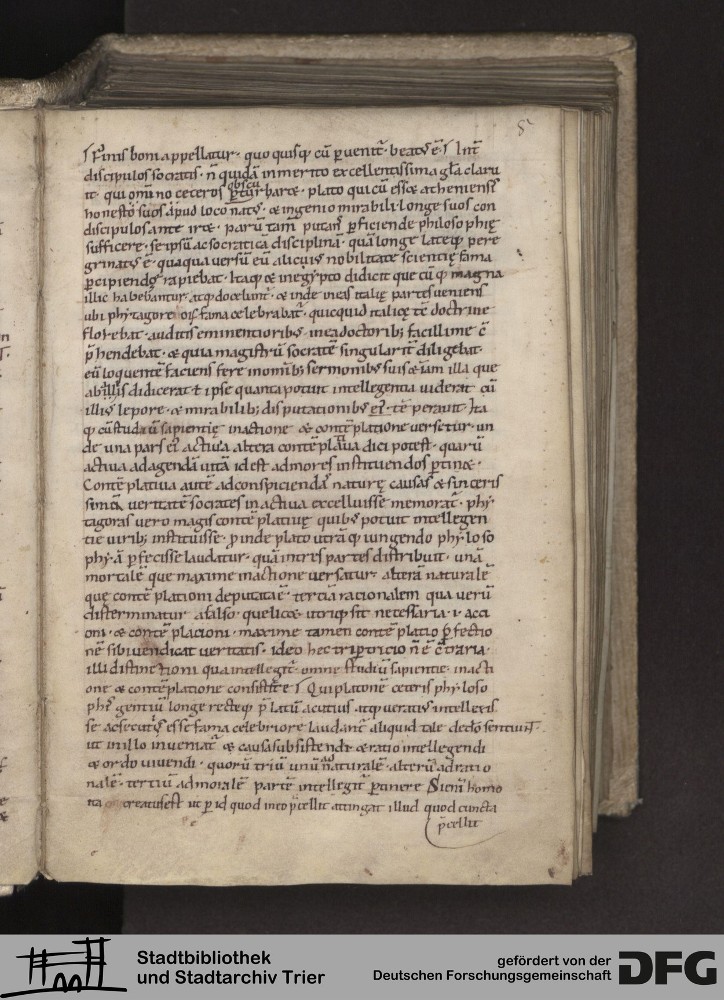 Finis boni appellatur · quo quisq; cū ꝑuenit · beatꝰ ē · Int̄
discipulos socratis · n̄ quidā inmerito excellentissima gl̄a claru
it · qui omīno ceteros obscu
ꝑturbaret · plato qui cū esset atheniensis
honesto suos apud loco natꝰ · et ingenio mirabili · longe suos con
discipulos ante iret · parū tam̄ putans ꝑficiende philosophię
sufficere · se ipsū ac socraticā disciplinā · quā longe lateq; pere
grinatꝰ ē · quaqua versū eū alicuiꝰ nobilitate scientię fama
ꝑcipiendę rapiebat · Itaq; et in egypto didicit que cūq; magna
illic habebantur · atq; docebant̄ · et inde in eas italię partes veniens
ubi phytagoreorū fama celebrabat̄ · quicquid italicę tc̄ doctrine
florebat · auditis eminentioribꝰ in ea doctorib; facillime c̄
p̄hendebat · et quia magistrū socratē singularit̄ diligebat ·
eū loquentē faciens fere in omīb; sermonibꝰ suis etiam illa que
ab illis didicerat t ipse quanta potuit intellegentia viderat cū
illiꝰ lepore · et mirabilib; disputationibꝰ eiꝰ · tēperavit Ita
q; cū studiū sapientię in actione et contēplatione versetur · un
de una pars eiꝰ activa altera contēplativa dici potest · quarū
activa ad agendā vitā id est ad mores instituendos ꝑtinet ·
Contēplativa autē ad conspiciendā naturę causas et sinceris
simā veritatē socrates in activa excelluisse memorat̄ · phy
tagoras vero magis contēplativę quibꝰ potuit intellegen
tie virib; institisse · ꝓinde plato utrāq; iungendo phyloso
phyā ꝑfecisse laudatur · quā in tres partes distribuit · unā
moralē que maxime in actione versatur · alterā naturalē
quę contēplationi deputata ē · terciā racionalem qua verū
disterminatur a falso · que licet utriq; sit necessaria · i · acti
oni · et contēplacioni · maxime tamen contēplatio ꝑfectio
nē sibi vendicat veritatis · ideo hec tripertitio n̄ ē c̄traria ·
illi distinctioni qua intellegit̄ · omne studiū sapientie · in acti
one et contēplatione consistere Qui platonē ceteris phyloso
phis gentiū longe recteq; p̄latū acutius atq; veratiꝰ intellexis
se ac secuti esse fama celebriore laudant̄ aliquid tale de deo sentiunt
ut in illo inveniat̄ et causa subsistendi et ratio intellegendi
et ordo vivendi · quorū triū unū ad naturalē · alterū ad ratio
nalē · tertiū ad moralē partē intellegit̄ ꝑtinere Si enī homo
ita creatus est ut ꝑ id quod in eo p̄cellit attingat illud quod cuncta
p̄cellit
Stadtbibliothek
und Stadtarchiv Trier
gefördert von der
Deutschen Forschungsgemeinschaft
DFG